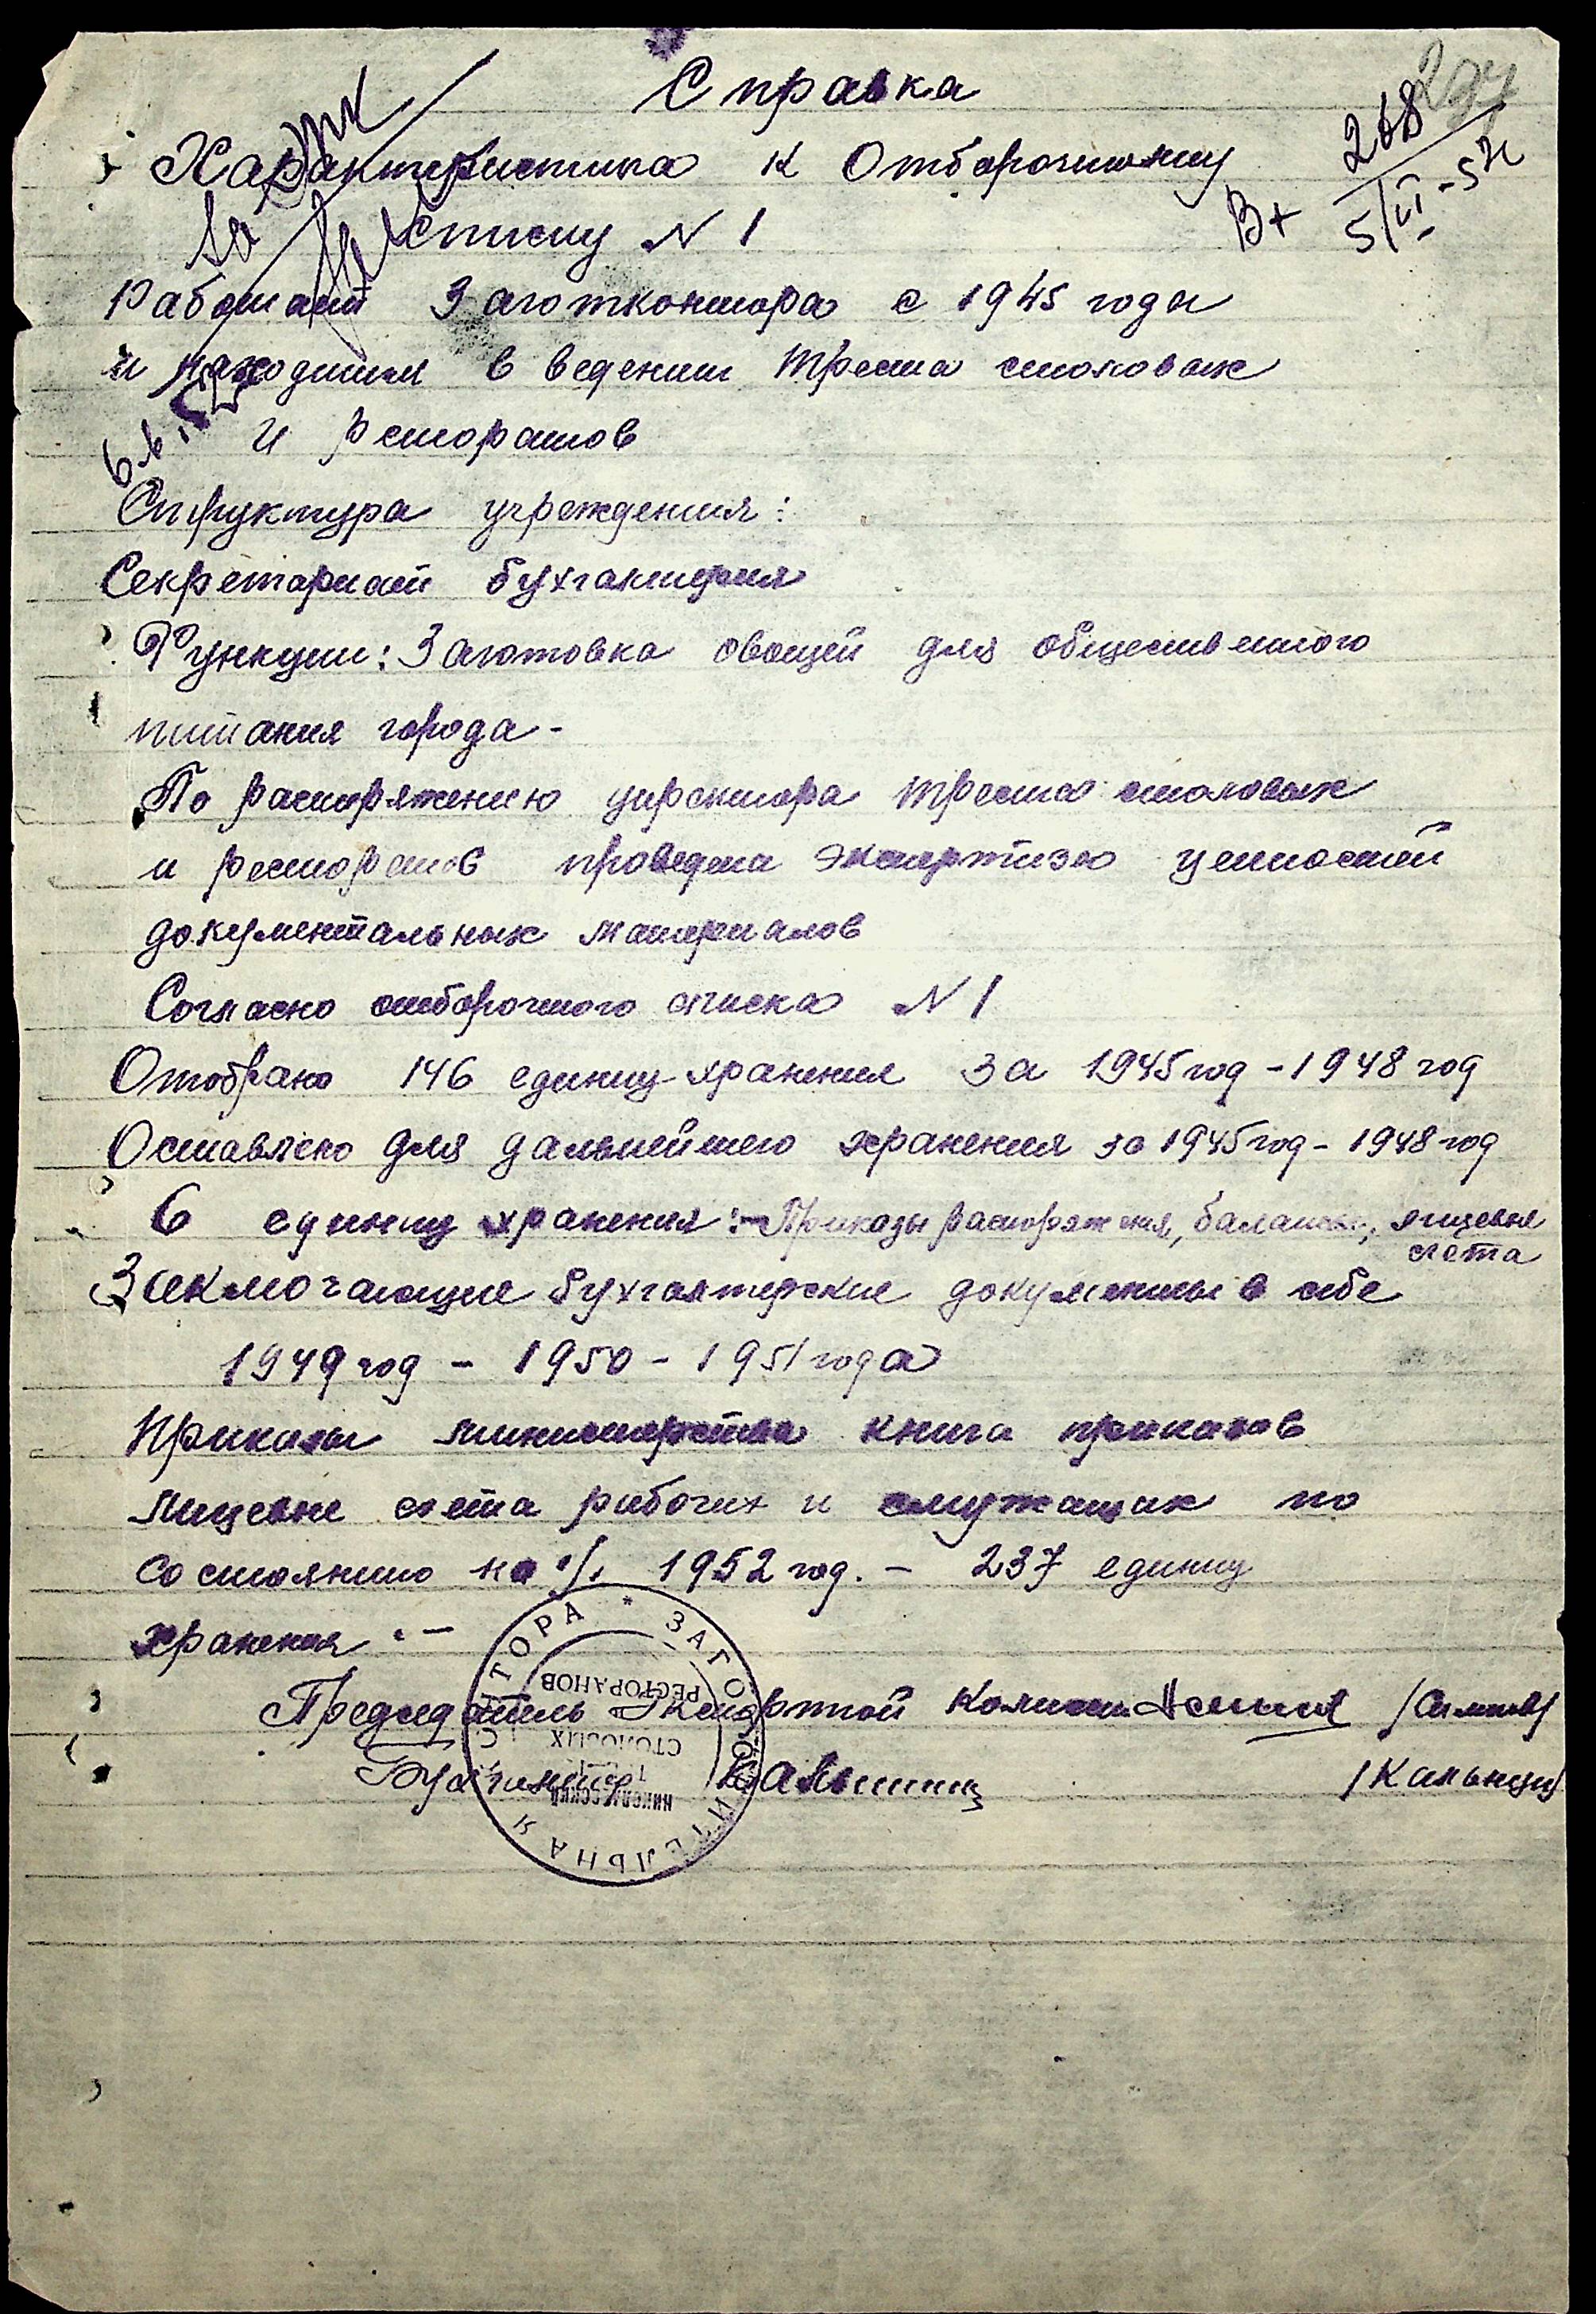 Справка
268
Вх 5/VI-52
Характеристика к Отборочному
списку N 1
6.6.52
Работает Заготконтора с 1945 года
и находится в ведении Треста столовых
и ресторанов
Структура учреждения:
Секретариат бухгалтерия
Функции: Заготовка овощей для общественного
питания города-
По распоряжению директора Треста столовых
и ресторанов проведена экспертиза ценностей
документальных материалов
Согласно отборочного списка N 1
Отобрано 146 единиц хранения за 1945 год - 1948 год
Оставлено для дальнейшего хранения за 1945 год - 1948 год
6 единиц хранения:- Приказы распоряжения, балансы, лицевые
счета
Заключающие бухгалтерские документы в себе
1949 год - 1950 - 1951 года
Приказы министерства книга приказов
Лицевые счета рабочих и служащих по
состоянию на 1/1 1952 год. - 237 единиц
хранения.-
Председатель Экспертной Комиссии
Бухгалтер Кальниц /Кальниц/
ЗАГОТОВИТЕЛЬНАЯ КОНТОРА *
НИКОЛАЕВСКИЙ
СТОЛОВЫХ
РЕСТОРАНОВ